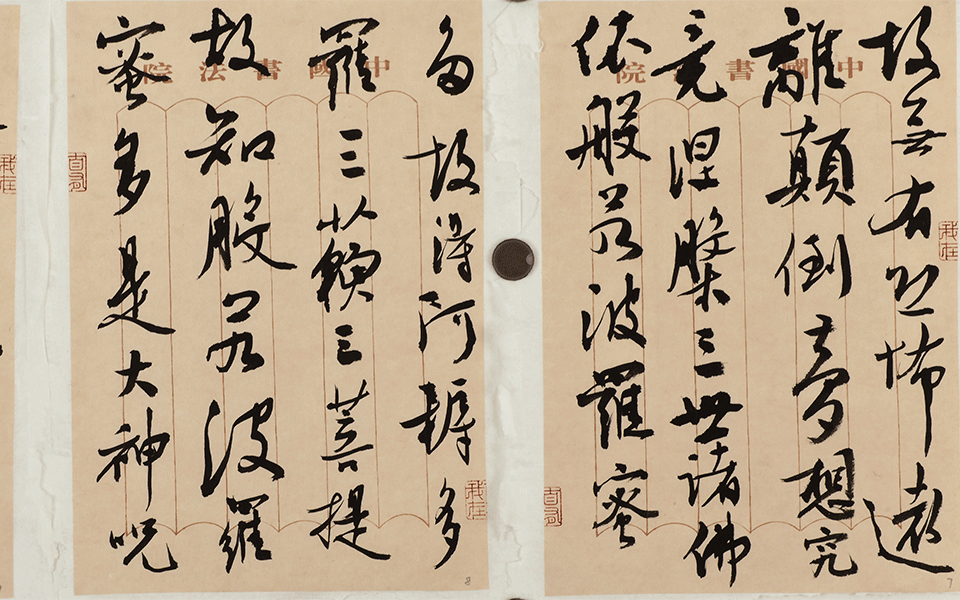 中國書院
故無有恐怖遠
離顛倒夢想究
竟涅槃三世諸佛
依般若波羅蜜
我在
7
中國書法院
多故得阿耨多
羅三藐三菩提
故知般若波羅
蜜多是大神呪
我在
8
我在